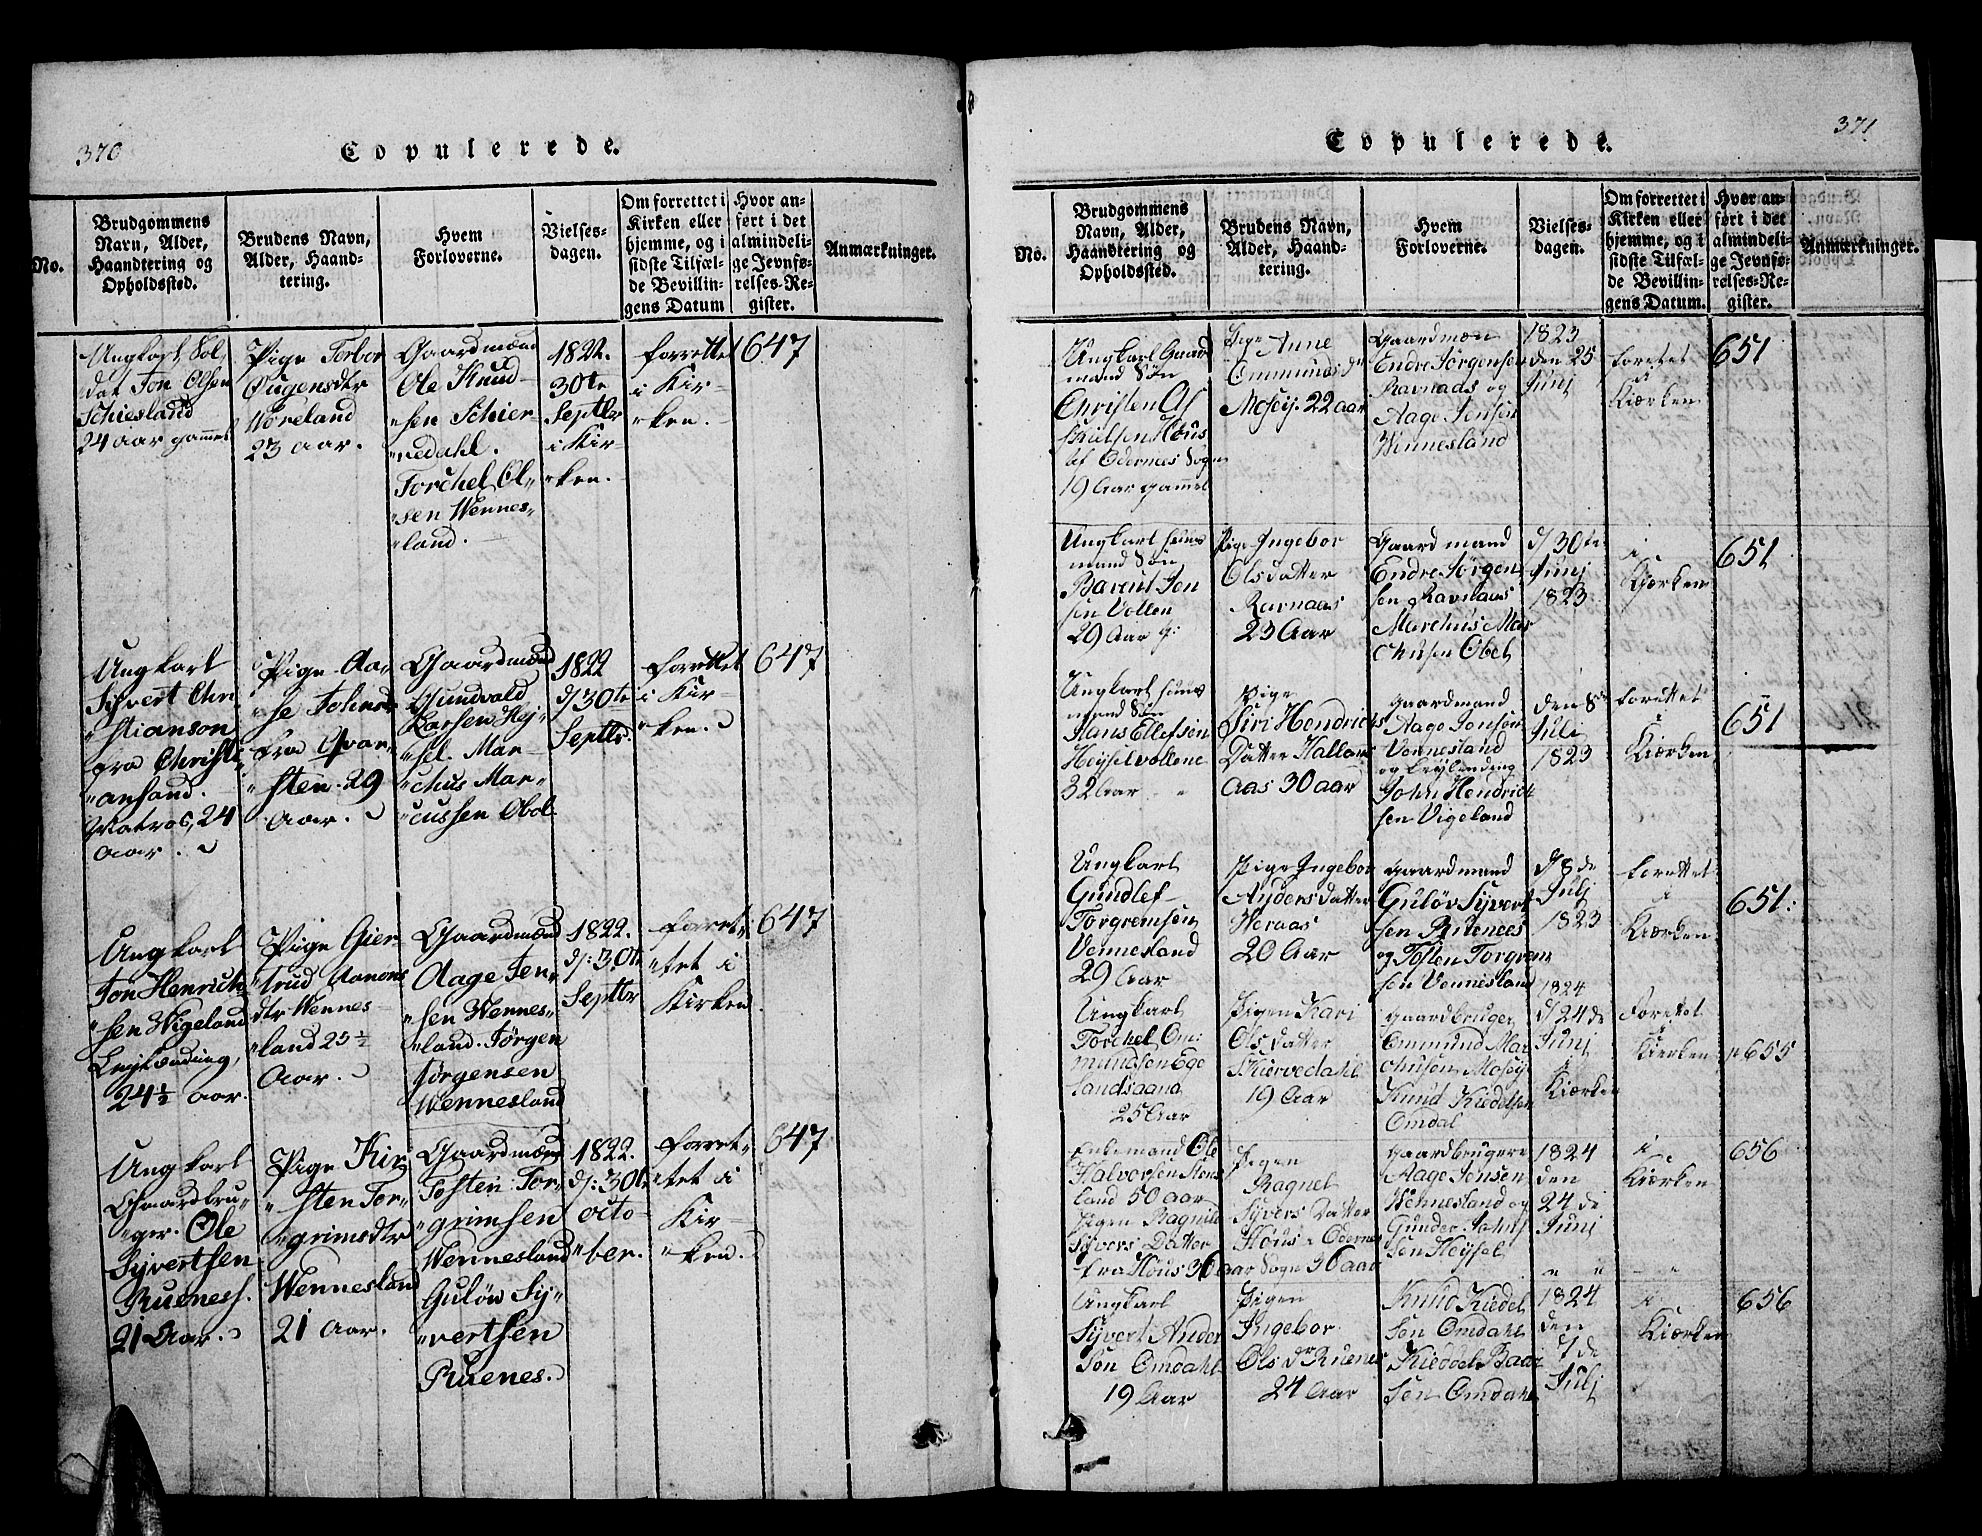 370
Copulerede.
No.
Brudgommens
Navn, Alder,
Haandtering og
Opholdssted.
Brudens Navn,
Alder, Haand-
tering.
Hvem
Forloverne.
Vielses-
dagen.
Om forrettet i
Kirken eller
hjemme, og i
sidste Tilfæl-
de Bevillin-
gens Datum
Hvor an-
ført i det
almindeli-
ge Jevnfø-
relses-Re-
gister.
Anmærkninger.
Ungkarl Sol,
dat Jon Olsen
Schiesland
24 aar gammel
Pige Torbor
Ougensdtr
Horeland
23 aar.
Gaardmænd
Ole Knud-
"sen Schier-
"vedahl.
Torchel Ol-
"sen Wennes-
"land.
1822.
30te
Septbr
i Kir-
"ken.
forrettet
i Kir-
"ken.
647
Ungkarl
Syvert Chri
"stianson
fra Christi
"ansand.
Matros, 24
aar.
Pige Aa-
"se Johns
fra Qvar,
"sten. 29
aar.
Gaardmænd
Gundvald
Larsen Hej-
"sel. Mar-
"chus Mar-
"cussen Obel
1822
d/30te
Septbr
forrettet
i Kir-
"ken.
647
Ungkarl
Jon Henrich-
"sen Wigeland
Lejlænding,
24½ aar.
Pige Gier
"trud Aanons
dtr Wennes-
"land 25½
Aar.
Gaardmænd
Aage Jen-
"sen Wennes-
"land. Jørgen
Jørgensen
Wennesland
1822.
d/: 30te
Septbr
forret-
"tet i
Kirken
647
Ungkarl
Gaardbru-
"ger. Ole
Syvertsen
Ruenes.
21 Aar.
Pige Kir
"sten Tor-
"grimsdtr
Wennesland
21 Aar.
Gaardmænd
Tosten Tor-
"grimsen
Wennesland
Guløw Sy-
"vertsen
Ruenes.
1822.
d/: 30te
octo-
"ber.
forret-
"tet i
Kir-
"ken.
647
371
Copulerede.
No.
Brudgommens
Navn, Alder,
Haandtering og
Opholdssted.
Brudens Navn,
Alder, Haand-
tering.
Hvem
Forloverne.
Vielses-
dagen.
Om forrettet i
Kirken eller
hjemme, og i
sidste Tilfæl-
de Bevillin-
gens Datum.
Hvor an-
ført i det
almindeli-
ge Jevnfø-
relses-Re-
gister.
Anmærkninger.
Ungkarl Gaard
mand Søn
Christen
Nielsen Høus
af Odernes Sogn
19 Aar gammel
Pige Anne
Ommunds dr
Mosey. 22 aar
Gaardmæn
Endre Jørgensen
Ravnaas og
Aage Jensen
Wennesland
1823
den 25
Junj
forettet
i
Kiærken
651
Ungkarl
mand Søn
Barent Jen
sen Vollen
29 Aar g:
Pige Ingebor
Olsdatter
Ravnaas
23 Aar
Gaardmand
Endre Jørgen
sen Ravnaas
Marchus Mar
chusen Obel
d/30te
Junj
1823
i
Kjærken
651
Ungkarl
mand Søn
Hans Ellefsen
Høyselvollene
32 Aar
Pige
Siri Hendrichs
Datter Hallan
aas 30 aar
Gaardmand
Aage Jensen
Vennesland
og Leylending
John Hendrich
sen Vigeland
den 8de
Juli
1823
forettet
i
Kiærken
651
Ungkarl
Gundlef
Torgremsen
Vennesland
29 Aar
Pige Ingebor
Andersdatter
Heraas
20 Aar
Gaardmand
Guløv Syvert
sen Ruenees
og Tosten Torgrem
sen Vennesland
d/8de
Julj
1823
forettet
i
Kiærken
651:
Ungkarl
Torchel Om:
mundsen Ege
landsaana
25 Aar
Pigen Kari
Olsdatter
Skiervedahl
19 Aar
Gaardbruger
Ommund Mar
chusen Mosey
Knud Kiedelsen
Omdal
1824
d/24de
Junj
i
Kiærken
Forettet
i
Kierken
655
Enkemand Ole
Halvorsen Stens
land 50 aar
Pigen Ragnild
Syvers Datter
fra Høus 36 Aar
Pigen
Ragnel
Syvers Datter
Høus i Odernes
Sogn 36 aar
Gaardbrugere
Aage Jensen
Wennesland og
Gunder John
sen Heysel
1824
den
24de
Junj
i
Kiærken
656
Ungkarl
Syvert Ander
Søn Omdahl
19 Aar
Pigen
Ingebor
Ols dr Ruenes
24 Aar
Knud Kiedel
Søn Omdahl
Kieddel Baar
Søn Omdahl
1824
den
7de
Julj
i
Kiærken
656